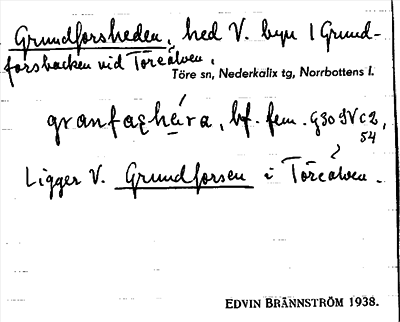 Grundforsheden, hed V. byn / Grund-
forsbacken vid Töreälven.
Töre sn, Nederkalix tg, Norrbottens l.
bf. fem. G30 SV c 2,
54
Ligger V. Grundforsen i Töreälven.
EDVIN BRÄNNSTRÖM 1938.